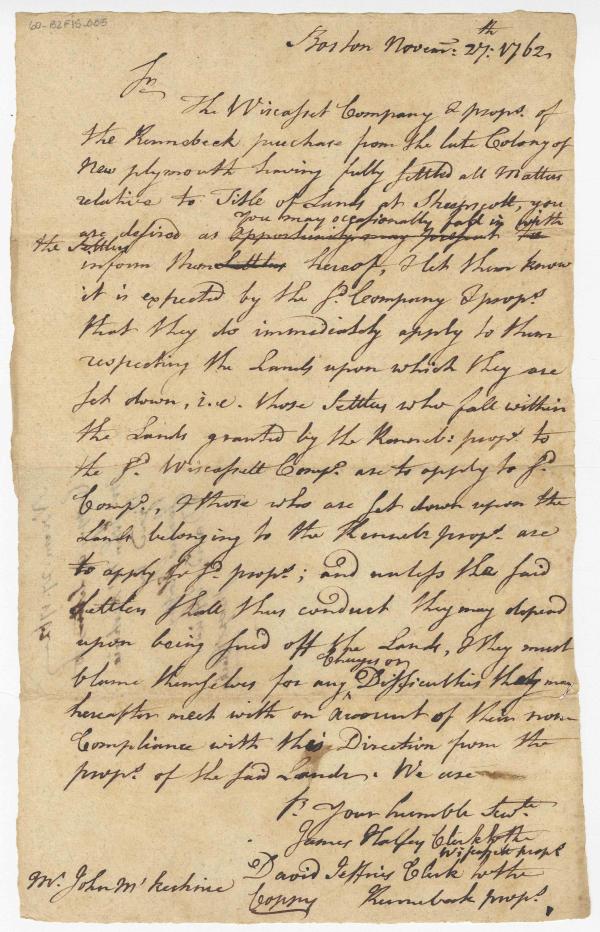 60-B2F15.005
Boston Novem: 27th: 1762
Sr.
The Wiscasset Company & propr. of
the Kennebeck purchase from the late Colony of
New plymouth having fully settled all Matters
relative to Title of Lands at Sheepscott, you
You may occasionally fall in with
are desired as opportunity may present to
the Settlers
inform them Settlers hereof, & let them know
it is expected by the sd. Company & proprs.
that they do immediately apply to them
respecting the Lands upon which they are
set down, i.e. those Settlers who fall within
the Lands granted by the Kenneb: propr. to
the sd. Wiscassett Compy. are to apply to sd.
Compy., & those who are set down upon the
Lands belonging to the Kenneb: propr. are
to apply to sd. propr.; and unless the said
Settlers shall thus conduct they may depend
upon being sued off the Lands, & they must
Charges or
blame themselves for any Difficulties they may
hereafter meet with on account of their non
Compliance with this Direction from the
propr. of the said Lands. We are
Sr. Your humble Servts.
James Halsey Clerk to the
Wiscasset propr.
David Jeffries Clerk to the
Mr. John Mc kechnie
Coppy Kennebeck propr.